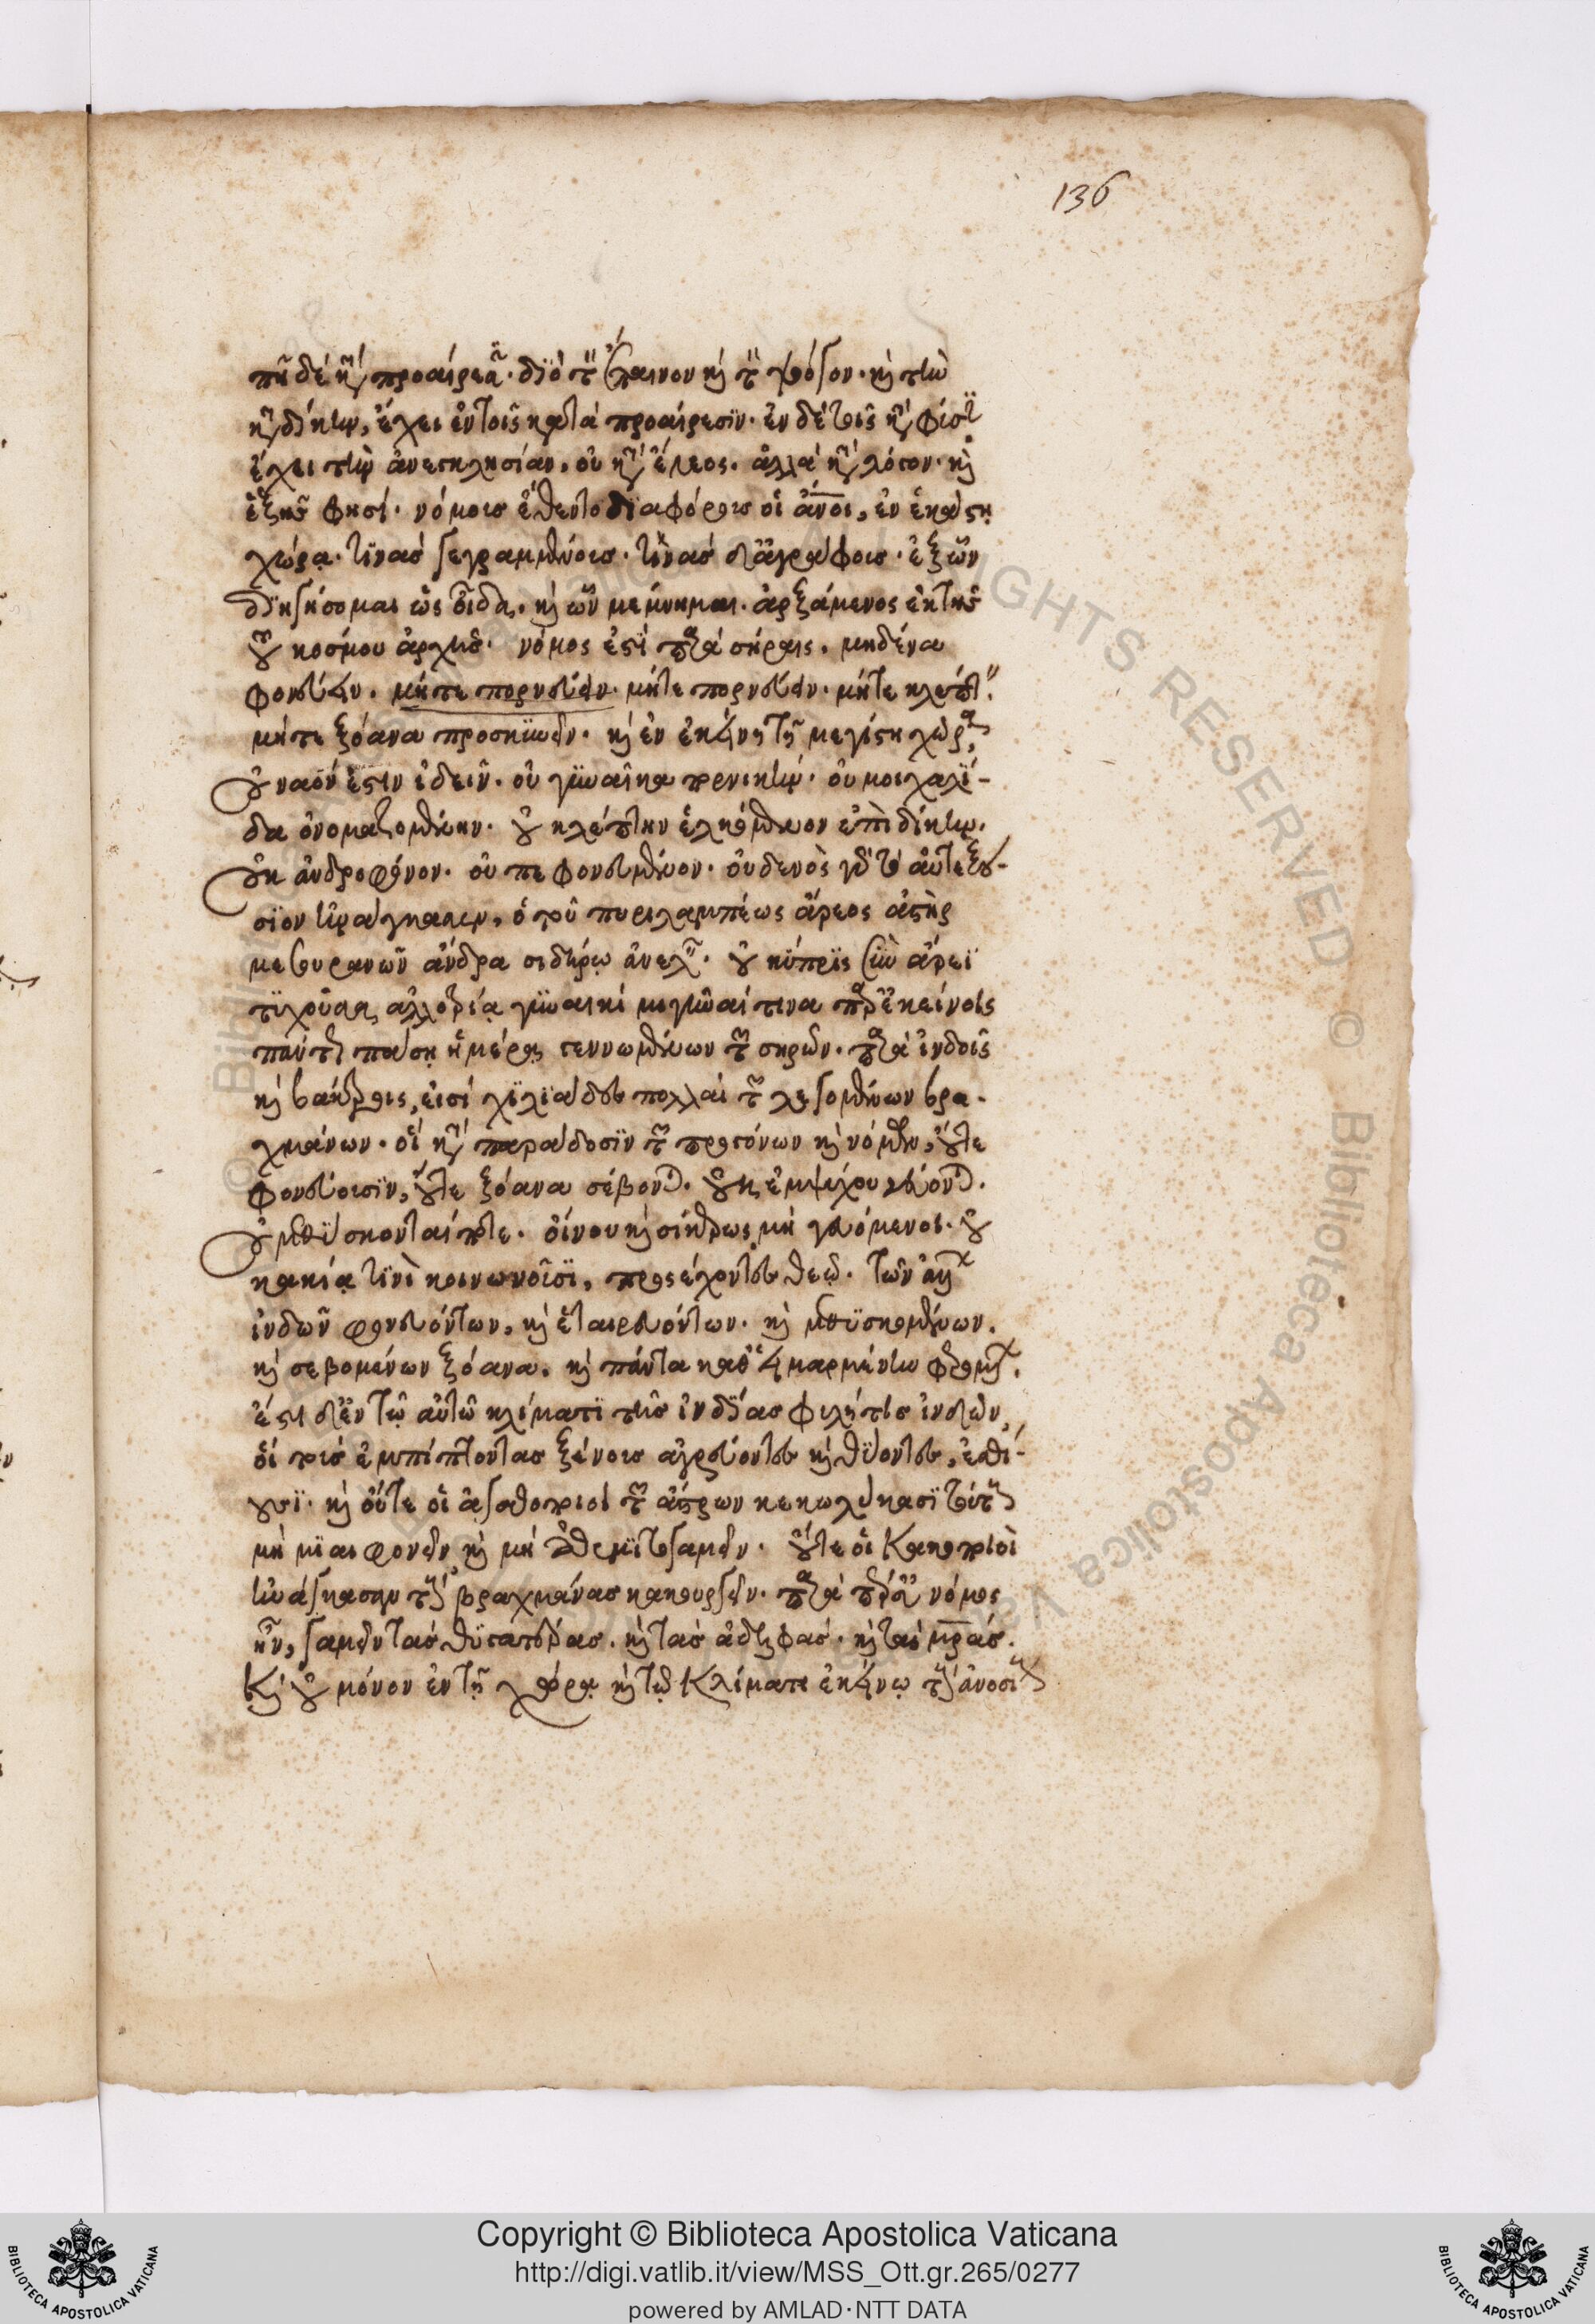 136
πῆ δέ κατὰ προαίρεσιν. διὸ τὸν ἔπαινον καὶ τὸν ψόγον. καὶ τὴν
καταδίκην, ἔχει ἐν τοῖς κατὰ προαίρεσϊν. ἐν δὲ τοῖς κατὰ φύσιν
ἔχει τὴν ἀνεγκλησίαν. οὐ κατὰ ἔλεος. ἀλλὰ κατὰ λόγον. καὶ
ἑξῆς φησί. νόμοις ἔθεντο διαφόροις οἱ ἄνοι, ἐν ἑκάστη
χώρᾳ. τϊνὰς γεγραμμένοις. τϊνὰς δὲ ἀγράφοις. ἐξ ὧν
δϊηγήσομαι ὡς οἶδα. καὶ ὧν μέμνημαι. ἀρξάμενος ἐκ τῆς
τοῦ κοσμου ἀρχῆς. νόμος ἐστὶ παρὰ σήραις. μηδένα
φονεύειν. μήτε πορνεύειν. μήτε πορνεύειν. μήτε κλέπτειν.
μήτε ξόανα προσκυνεῖν. καὶ ἐν ἐκείνῃ τῇ μεγίστῃ χώρᾳ
οὐ ναόν ἐστιν ἰδεῖν. οὐ γυναῖκα πορνικήν. οὐ μοιχαλί-
δα ὀνομαζομένην. οὐ κλέπτην ἑλκόμενον ἐπὶ δίκην.
οὐκ ἀνδροφόνον. οὐ πεφονευμένον. οὐδενὸς γὰρ τὸ αὐτεξού-
σϊον ἠνάγκασεν, ὁ τοῦ πυριλαμπέως ἄρεος ἀστὴρ
μεσουρανῶν ἄνδρα σιδήρῳ ἀνελεῖν. οὐ κύπρϊς σὺν ἄρεϊ
τυχοῦσα, ἀλλοτρίᾳ γυναικὶ μιγῆναί τινα παρ' ἐκείνοις
πάντως πάσῃ ἡμέρᾳ γεννωμένων τῶν σηρῶν. παρὰ ἰνδοῖς
καὶ βάκτροις, εἰσὶ χϊλϊάδες πολλαὶ τῶν λεγομένων βρα-
χμάνων. οἳ κατὰ παράδοσϊν τῶν προγόνων καὶ νόμων, οὔτε
φονεύουσϊν, οὔτε ξόανα σέβονται. οὐκ ἐμψύχου γεύονται.
οὐ μεθύσκονταί ποτε. οἴνου καὶ σίκερος μὴ γευόμενοι. οὐ
κακίᾳ τϊνὶ κοινωνοῦσϊ, προσέχοντες θεῷ. τῶν ἄλλων
ἰνδῶν φονευόντων, καὶ ἑταιρευόντων. καὶ μεθϋσκομένων.
καὶ σεβομένων ξόανα. καὶ πάντα καθ' εἱμαρμένην φερομένων.
ἔστι δὲ ἐν τῷ αὐτῷ κλίματι τῆς ἰνδϊας φυλή τις ἰνδῶν,
οἳ τοὺς ἐμπίπτοντας ξένους ἀγρεύοντες καὶ θύοντες, ἐσθί-
ουσϊ. καὶ οὔτε οἱ ἀγαθοποιοὶ τῶν ἀστέρων κεκωλύκασϊ τούτους
μὴ μϊαιφονεῖν καὶ μὴ ἀθεμϊτογαμεῖν. οὔτε οἱ κακοποιοὶ
ἠνάγκασαν τοὺς βραχμάνας κακουργεῖν. παρὰ πέρσαις νόμος
ἦν, γαμεῖν τὰς θυγατέρας. καὶ τὰς ἀδελφάς. καὶ τὰς μρας.
καὶ οὐ μόνον ἐν τῇ χώρᾳ καὶ τῷ κλίματι ἐκείνῳ τοὺς ἀνοσίους
Copyright © Biblioteca Apostolica Vaticana
http://digi.vatlib.it/view/MSS_Ott.gr.265/0277
powered by AMLAD·NTT DATA
BIBLIOTECA APOSTOLICA VATICANA
BIBLIOTECA APOSTOLICA VATICANA